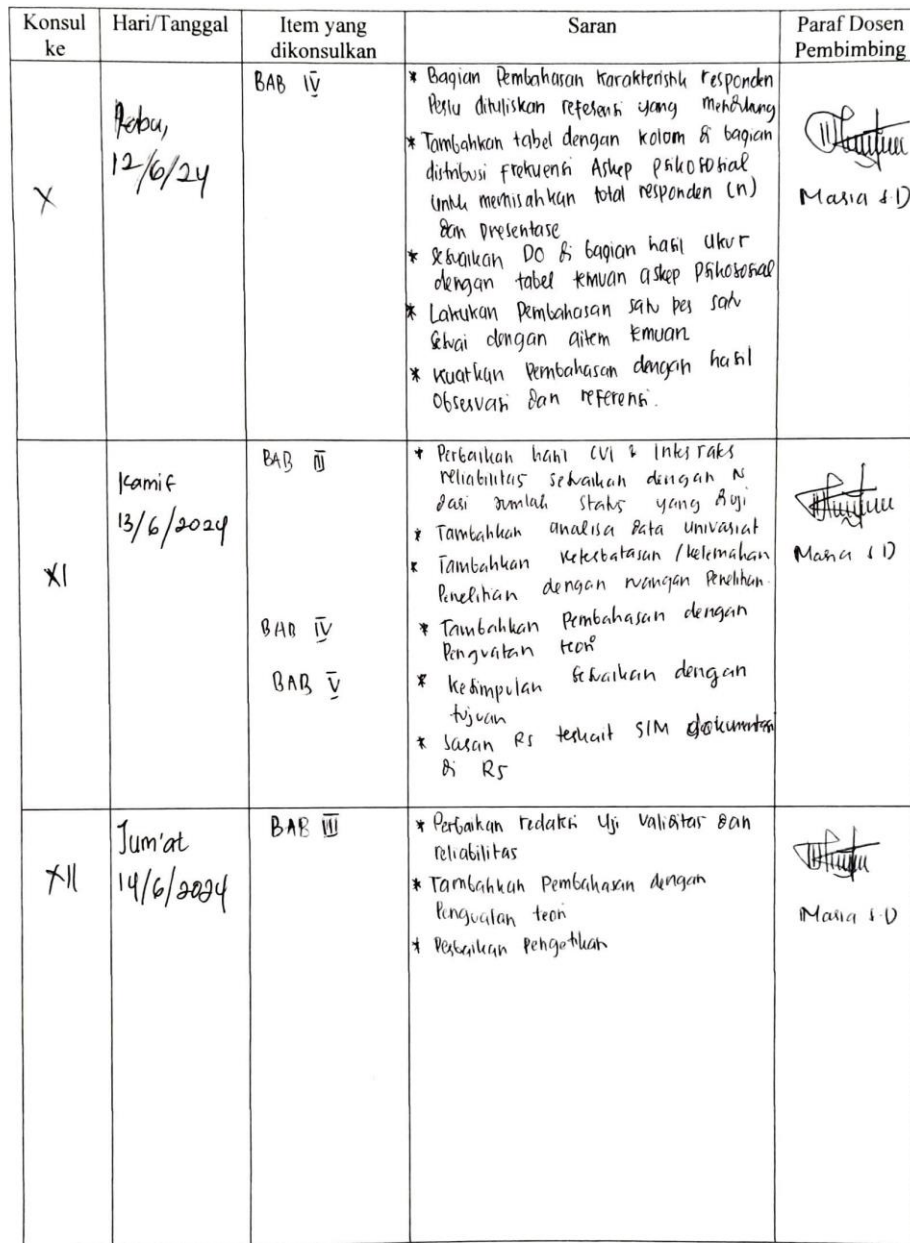 Konsul ke
Hari/Tanggal
Item yang dikonsulkan
Saran
Paraf Dosen Pembimbing
X
Rabu,
12/6/24
BAB IV
* Bagian Pembahasan karakteristik responden
Perlu dituliskan referensi yang mendukung
* Tambahkan tabel dengan kolom di bagian
distribusi frekuensi Askep psikososial
untuk memisahkan total responden (n)
dan presentase
* Sesuaikan DO di bagian hasil ukur
dengan tabel temuan askep psikososial
* Lakukan Pembahasan satu per satu
sesuai dengan aitem temuan
* Kuatkan Pembahasan dengan hasil
observasi dan referensi.
Maria S.D
XI
Kamis
13/6/2024
BAB III
* Perbaikan hasil CVI &
reliabilitas sesuaikan dengan N
dari jumlah status yang diuji
* Tambahkan analisa data univariat
* Tambahkan keterbatasan / kelemahan
Penelitian dengan ruangan Penelitian.
BAB IV
* Tambahkan Pembahasan dengan
Penguatan teori
BAB V
* Kesimpulan sesuaikan dengan
tujuan
* Saran RS terkait SIM dokumentasi
di RS
Maria S.D
XII
Jum'at
14/6/2024
BAB III
* Perbaikan redaksi Uji Validitas dan
reliabilitas
* Tambahkan Pembahasan dengan
Penguatan teori
* Perbaikan Pengetikan
Maria S.D